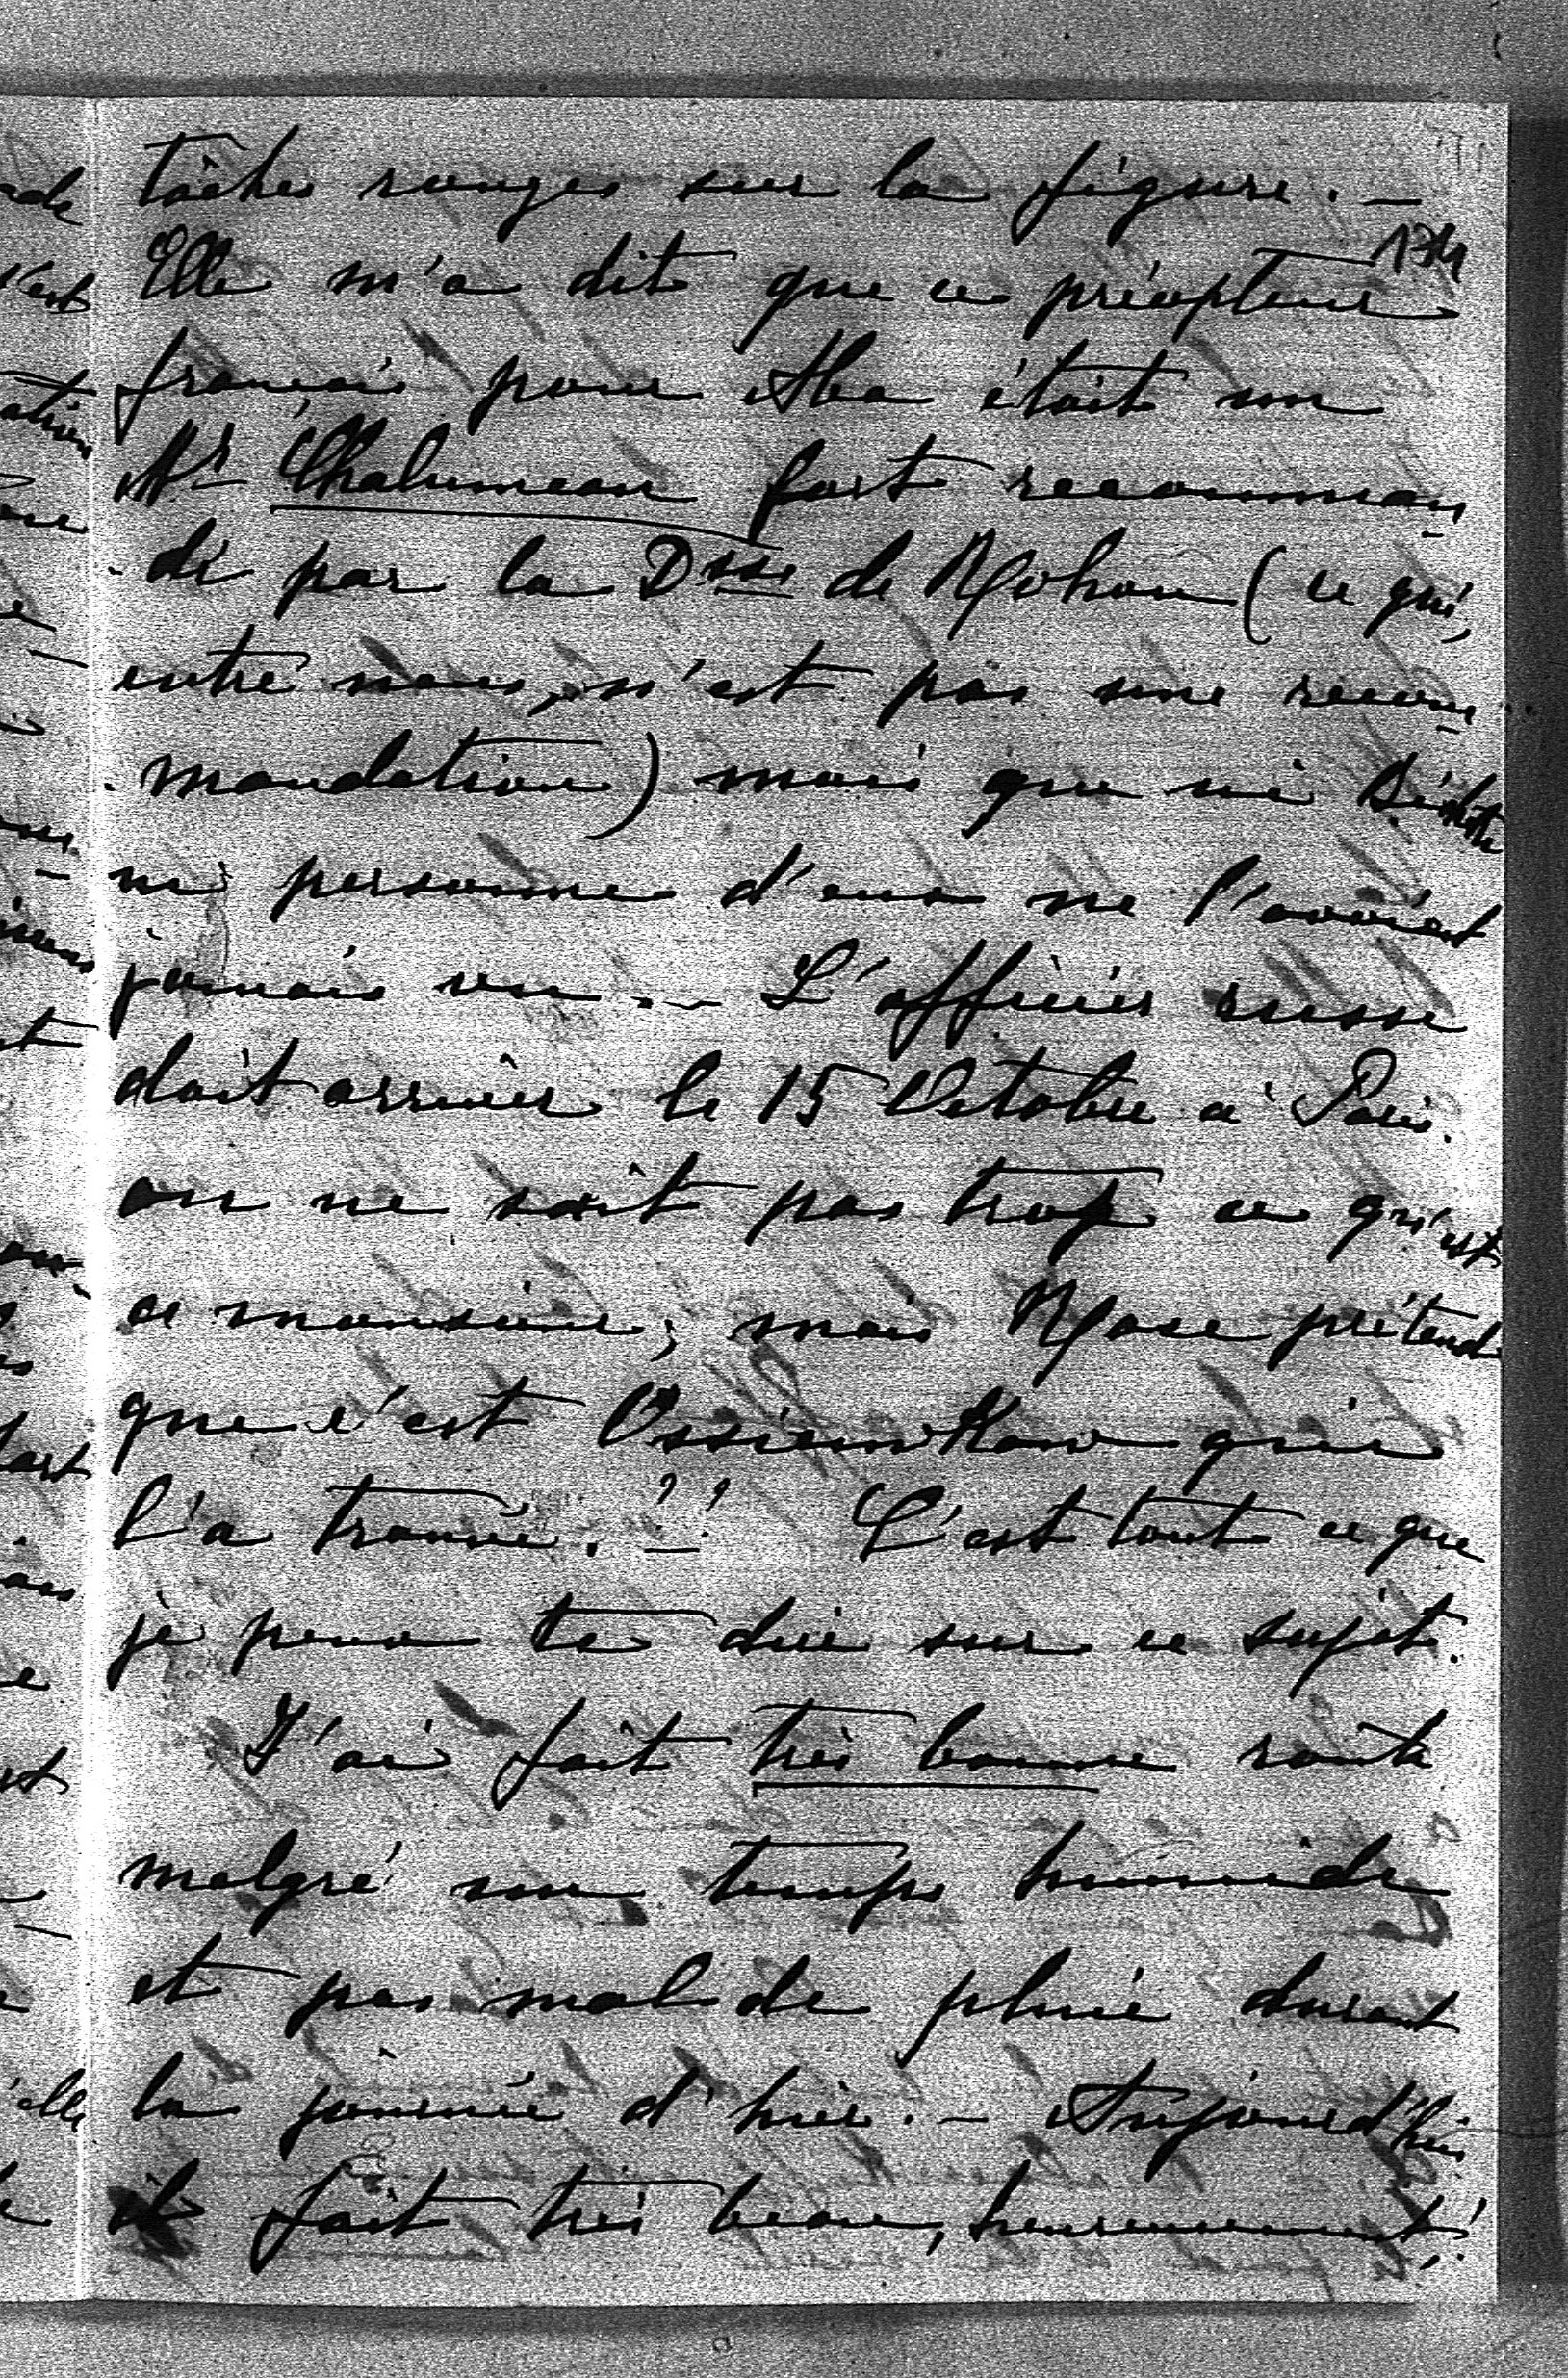 tâches rouges sur la figure. —
134
Elle m'a dit que ce précepteur
français pour Aba était un
Mr Chalumeau fort recomman
-dé par la Dsse de Rohan (ce qui,
entre nous, n'est pas une recom
-mandation) mais que ni
ni personne d'eux ne l'avaient
jamais vu. — L'officier russe
doit arriver le 15 Octobre à Paris.
on ne sait pas trop ce qu'est
ce monsieur, mais Rose prétend
que c'est Ossiemkow qui
l'a trouvé. ?! C'est tout ce que
je peux te dire sur ce sujet.
J'ai fait très bonne route
malgré un temps humide
et pas mal de pluie durant
la journée d'hier. — Aujourd'hui
il fait très beau, heureusement!